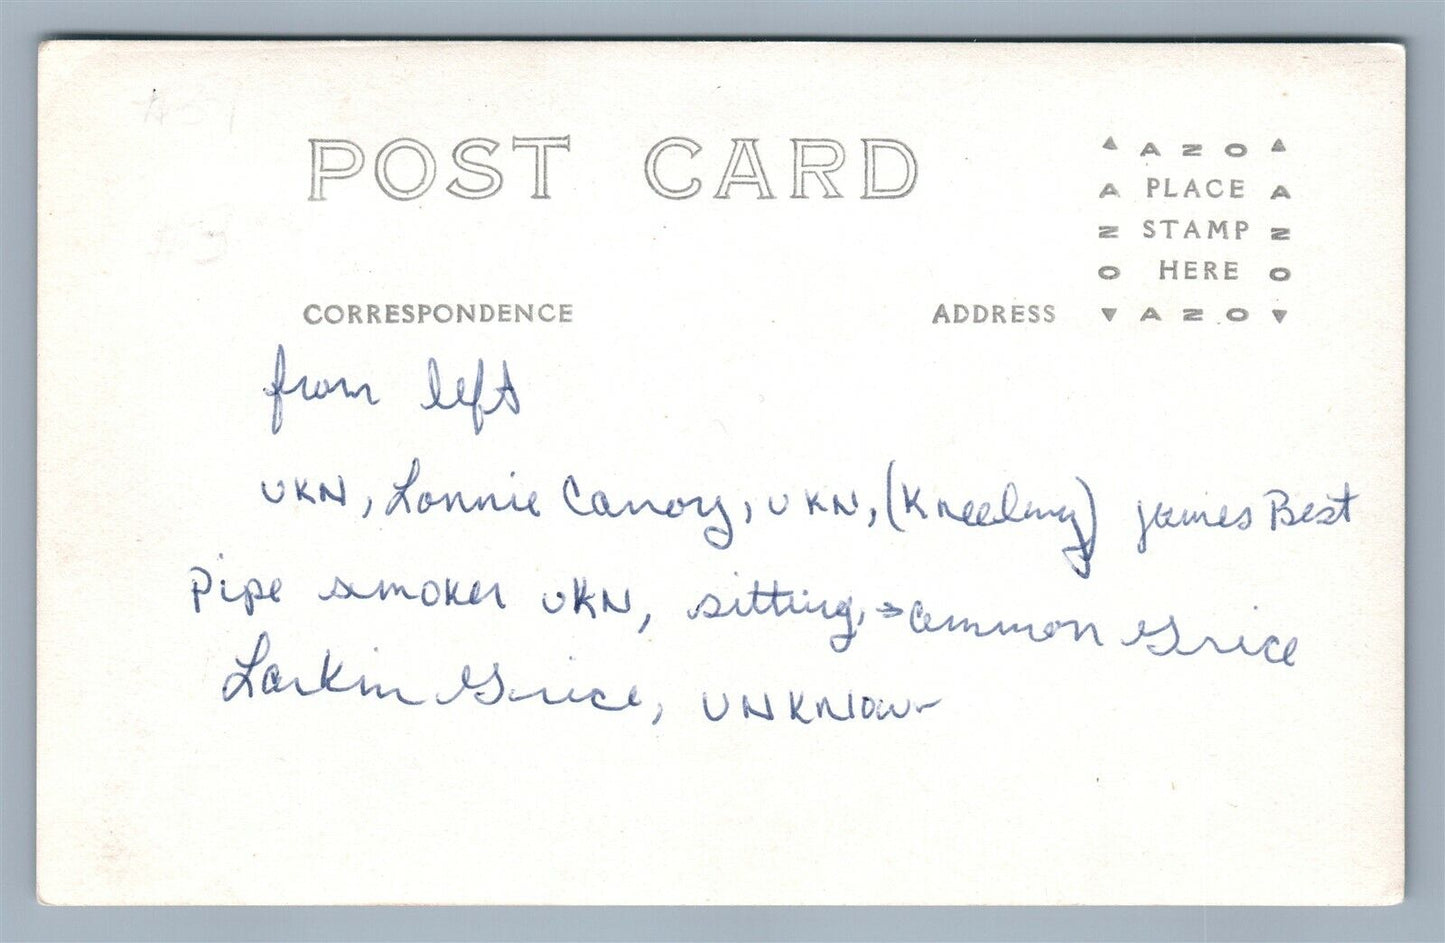 POST CARD
▲ A Z O ▲
A PLACE A
Z STAMP Z
O HERE O
▼ A Z O ▼
CORRESPONDENCE ADDRESS
from left
UKN, Lonnie Canoy, UKN, (Kneeling) James Best
Pipe smoker UKN, sitting, Grice
Larkin Grice, UNKNOWN